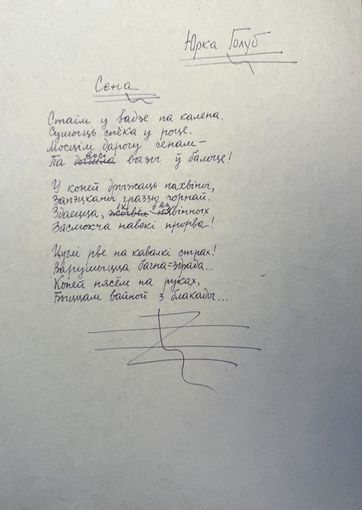 Юрка Голуб
Сена
Стаім у вадзе па калена.
Сушыць спёка у роце.
Мосцім дарогу сенам –
Па восі вязы ў балоце!
У коней дрыжаць пахвіны,
Запэцканы граззю чорнай.
Здаецца, іх, бязвінных
Засмокча навекі прорва!
Цуглі рве на кавалкі страх!
Варушыцца багна=здрада...
Коней нясём на руках,
Быццам вайной з блакады...